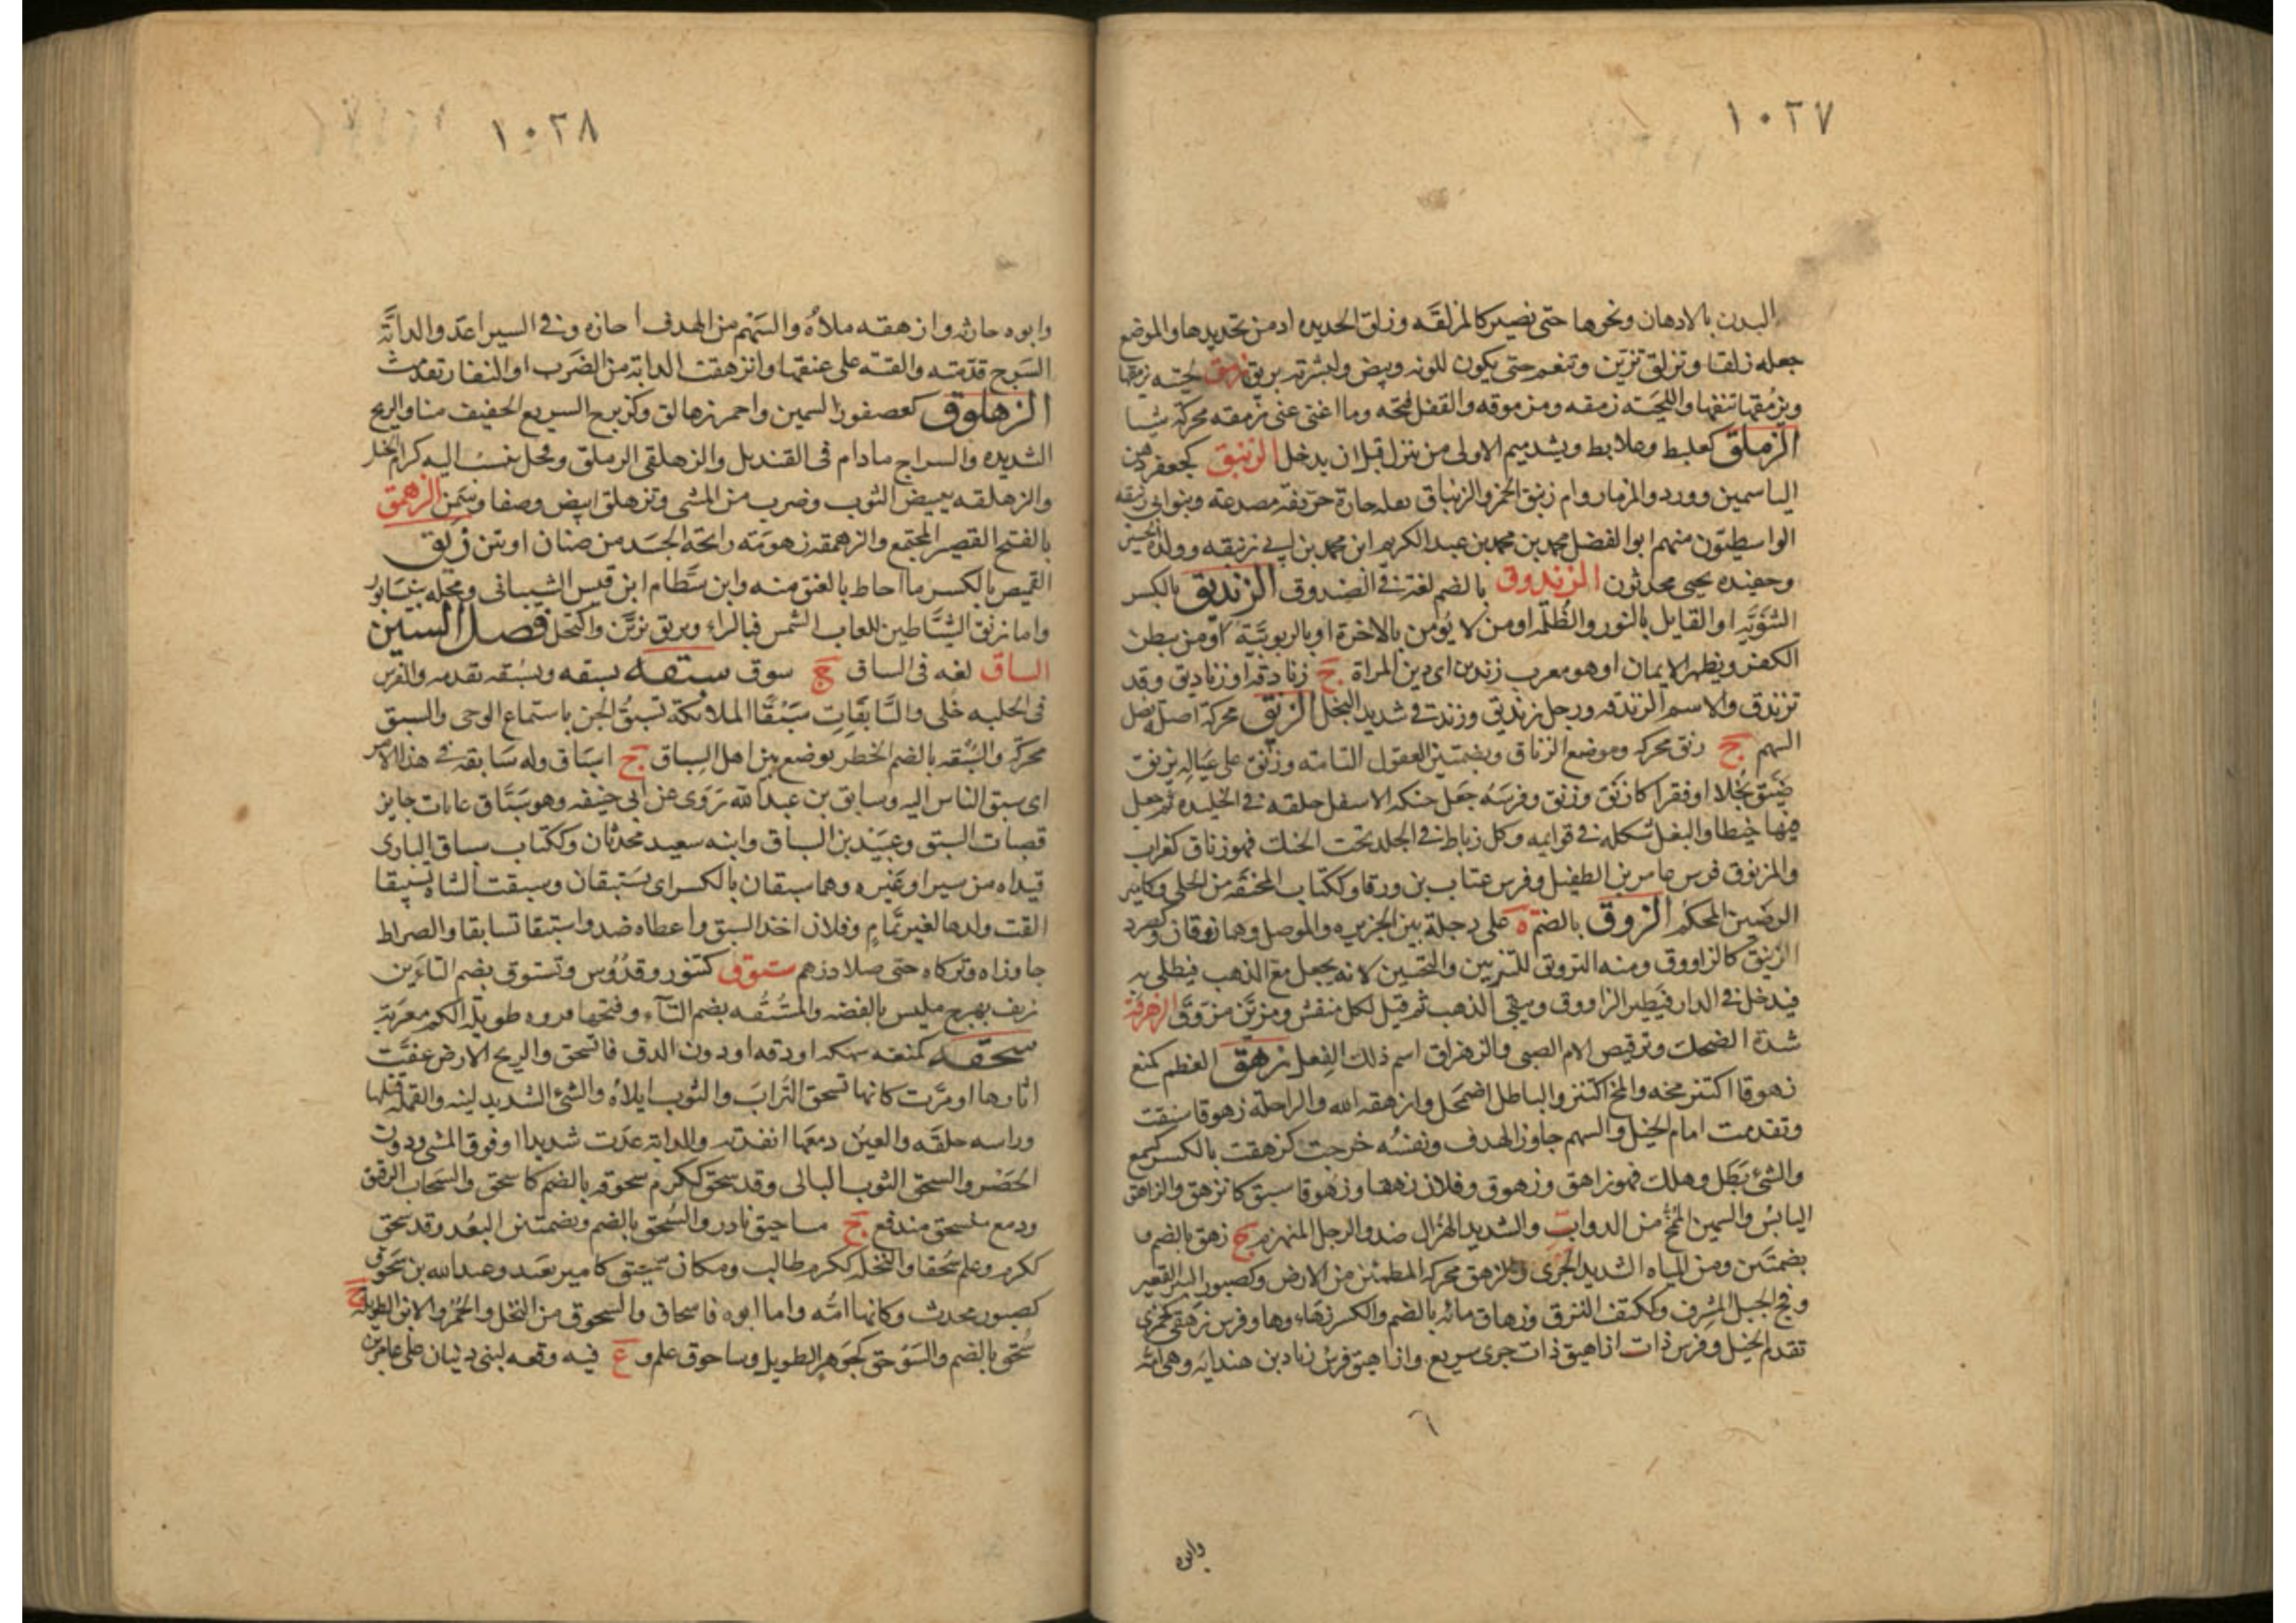 ١٠٢٧
البدن بالادهان ونحوها حتى يصير كالمزلقه وزلق الحديده ادمن تحديدها والموضع
جعله زلقا وتزلق تزين وتنعم حتى يكون للونه وبيص ولبشرته بريق زمق لحيته يزمقها
ويزمقها نتفها واللحية زمقه ومزموقه والقفل فتحه وما اغنى عنى زمقه محركة شيئا
الزملق كعلبط وعلابط ويشد ميم الاولى من ينزل قبل ان يدخل الزنبق كجعفر دهن
الياسمين وورد والمزمار وام زنبق الخمر والزنباق بقله حارة حريفه مصدعة وبنو ابى زنبقه
الواسطيون منهم ابو الفضل محمد بن محمد بن عبد الكريم ابن محمد بن ابى زنبقه وولده الحسين
وحفيده يحيى محدثون الزندوق بالضم لغة فى الصندوق الزنديق بالكسر
الثنويه او القايل بالنور والظلمه او من لا يؤمن بالاخرة او بالربوبيّة او من يبطن
الكفر ويظهر الايمان او هو معرب زن دين اى دين المراة ج زنادقه او زناديق وقد
تزندق والاسم الزندقه ورجل زنديق وزندقى شديد البخل الزنق محركة اصله نصل
السهم ج زنق محركه وموضع الزناق وبضمتين العقول التامه وزنق على عياله يزنق
ضيق بخلا او فقرا كازنق وزنق وفرسه جعل حنكه الاسفل حلقه فى الجليده ثم جعل
فيها خيطا والبغل شكله فى قوايمه وكل رباط فى الجلد تحت الحنك فهو زناق كغراب
والمزنوق فرس عامر بن الطفيل وفرس عتاب بن ورقا وككتاب المخنقه من الحلى وكامير
الرصين المحكم الزوق بالضم ة على دجلة بين الجزيره والموصل وهما زوقان وكصرد
الزيبق كالزاووق ومنه التزويق للتزيين والتحسين لانه يجعل مع الذهب فيطلى به
فيدخل فى النار فيطير الزاووق ويبقى الذهب ثم قيل لكل منقش ومزين مزوق الزهزقة
شدة الضحك وترقيص الام الصبى والزهزاق اسم ذلك الفعل زهق العظم كمنع
زهوقا اكتنز مخه والمخ اكتنز والباطل اضمحل وازهقه الله والراحلة زهوقا سبقت
وتقدمت امام الخيل والسهم جاوز الهدف ونفسه خرجت كزهقت بالكسر كسمع
والشئ بطل وهلك فهو زاهق وزهوق وفلان زهقا وزهوقا سبق كانزهق والزاهق
اليابس والسمين المخ من الدواب والشديد الهزال ضد والرجل المنهزم ج زهق بالضم و
بضمتين ومن المياه الشديد الجرى والزهق محركه المطمئن من الارض وكصبور البير القعير
وفج الجبل المشرف وككتف النزق وزهاق مائه بالضم والكسر زهاءوها وفرس زهقى كجمزى
تقدم الخيل وفرس ذات ازاهيق ذات جرى سريع وازاهيق فرس زياد بن هندابه وهى امه
وابوه
١٠٢٨
وابوه حارثه وازهقه ملاه والسهم من الهدف اجازه وفى السير اعد والدابة
السرج قدمته والقته على عنقها وانزهقت الدابة من الضرب او النفار تقدمت
الزهلوق كعصفور السمين واحمر زهالق وكزبرج السريع الخفيف منا والريح
الشديده والسراج مادام فى القنديل والزهلقى الزملق وفحل ينسب اليه كرام الخيل
والزهلقه تبييض الثوب وضرب من المشى وتزهلق ابيض وصفا وسمن الزهمق
بالفتح القصير المجتمع والزهمقه زهومة رائحة الجسد من صنان او نتن زيق
القميص بالكسر ما احاط بالعنق منه وابن بسطام ابن قيس الشيبانى ومحله بنيسابور
واما زيق الشياطين للعاب الشمس فبالراء وتزيق تزين واكتحل فصل السين
الساق لغه فى الساق ج سوق سبقه يسبقه ويسبقه تقدمه والفرس
فى الحلبه خلى والسابقات سبقا الملائكة تسبق الجن باستماع الوحى والسبق
محركه والسبقه بالضم الخطر يوضع بين اهل السباق ج اسباق وله سابقه فى هذا الامر
اى سبق الناس اليه وسابق بن عبد الله روى عن ابى حنيفه وهو سباق غايات جايز
قصبات السبق وعبيد بن السباق وابنه سعيد محدثان وككتاب سباق البازى
قيداه من سير او غيره وهما سبقان بالكسر اى يستبقان وسبقت الشاة تسبيقا
القت ولدها لغير تمام وفلان اخذ السبق واعطاه ضد واستبقا تسابقا والصراط
جاوزاه وتركاه حتى ضلا درهم ستوق كتنور وقدوس وتستوق بضم التاءين
زيف بهرج ملبس بالفضه والمستقه بضم التآء وفتحها فروه طويلة الكم معربة
سحقه كمنعه سهكه او دقه او دون الدق فانسحق والريح الارض عفت
اثارها او مرت كانها تسحق التراب والثوب ابلاه والشئ الشديد لينه والقمله قتلها
وراسه حلقه والعين دمعها انفدته والدابة عدت شديدا او فوق المشى ودون
الحضر والسحق الثوب البالى وقد سحق ككرم سحوقه بالضم كاسحق والسحاب الرقيق
ودمع منسحق مندفع ج مساحيق نادر والسحق بالضم وبضمتين البعد وقد سحق
ككرم وعلم سحقا والنخله ككرم طالت ومكان سحيق كامير بعيد وعبد الله بن سحوق
كصبور محدث وكانها امه واما ابوه فاسحاق والسحوق من النخل والحمر والاتن الطويلة ج
سحق بالضم والسوحق كجوهر الطويل وساحوق علم و ع فيه وقعه لبنى ذبيان على عامر بن